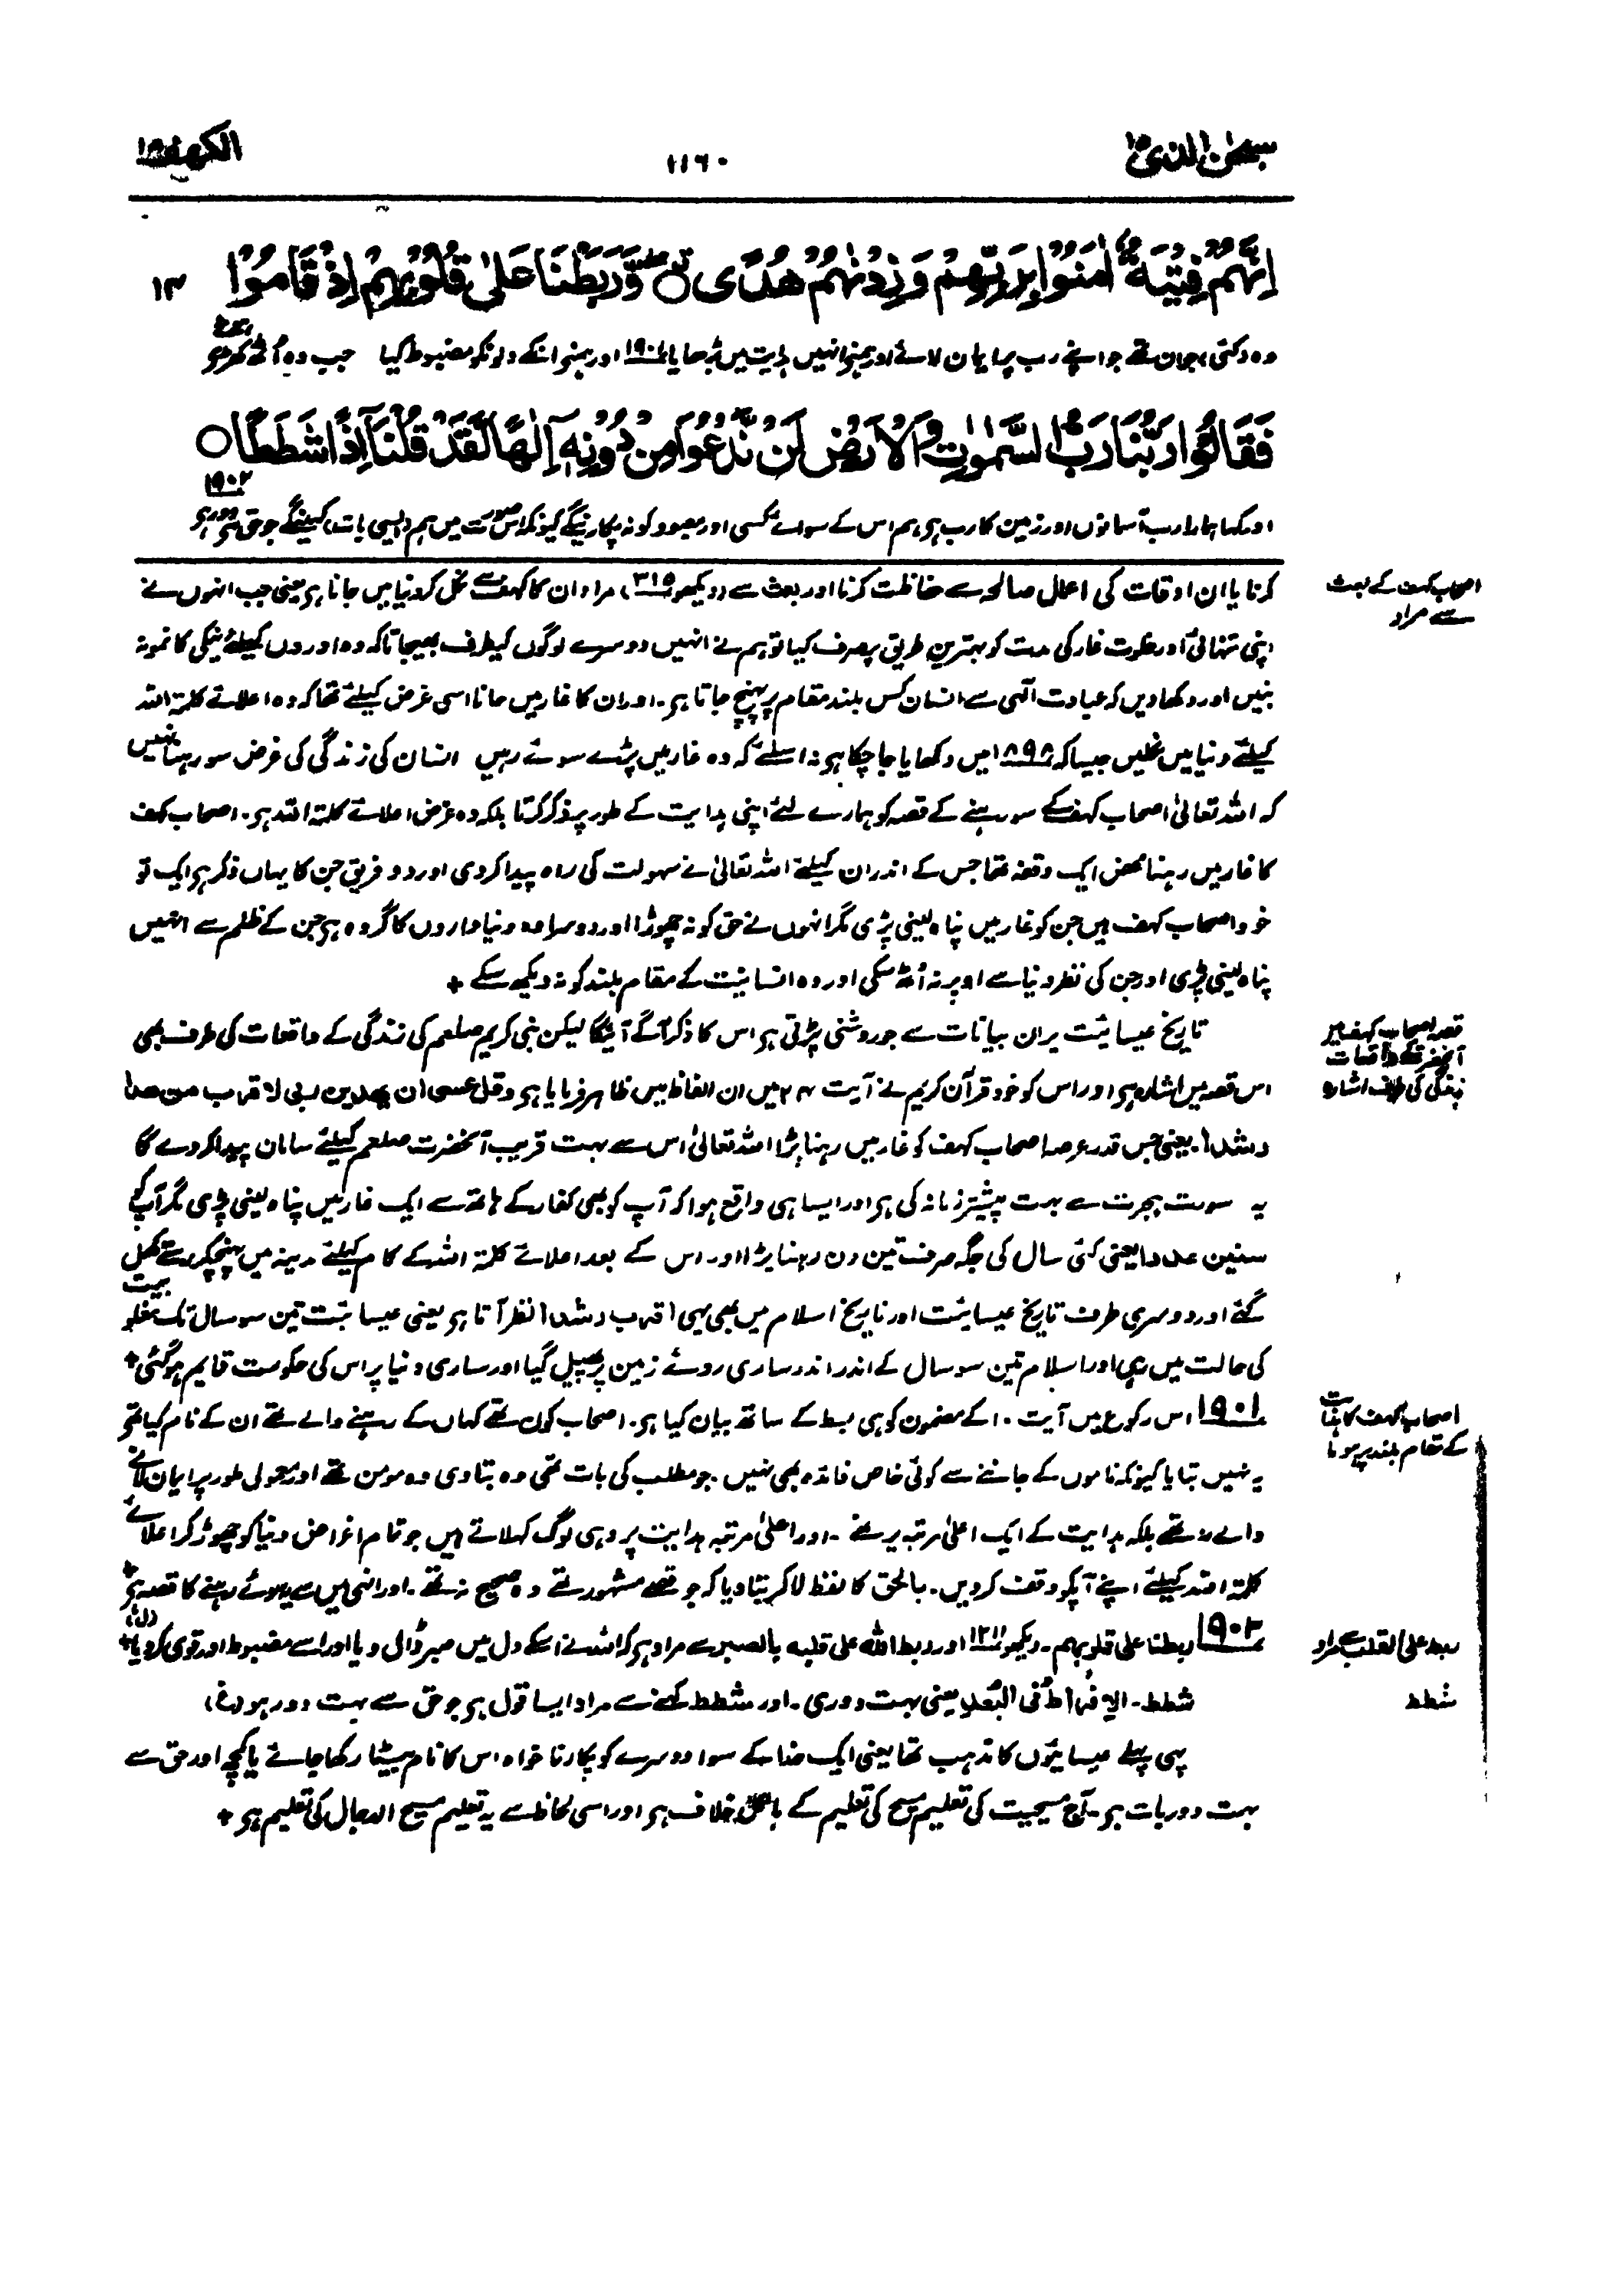 سبحن الذی ۱۵
۱۱۶۰
الکهف ۱۸
اِنَّهُمْ فِتْیَةٌ اٰمَنُوْا بِرَبِّهِمْ وَ زِدْنٰهُمْ هُدًی ○ وَّرَبَطْنَا عَلٰی قُلُوْبِهِمْ اِذْ قَامُوْا ۱۴
وہ (کئی) جوان تھے جو اپنے رب پر ایمان لائے اور ہمنے انہیں ہدایت میں بڑھایا ۱۹۰۱ اور ہمنے انکے دلونکو مضبوط کیا جب وہ اُٹھ کھڑے ہوئے
فَقَالُوْا رَبُّنَا رَبُّ السَّمٰوٰتِ وَالْاَرْضِ لَنْ نَّدْعُوَا مِنْ دُوْنِهٖٓ اِلٰهًا لَّقَدْ قُلْنَآ اِذًا شَطَطًا ○
اور کہا ہمارا رب آسمانوں اور زمین کا رب ہی، ہم اس کے سوائے کسی اور معبود کو نہ پکارینگے کیونکہ اس صورت میں ہم (ایسی بات) کہینگے جو حق سے دور ہو ۱۹۰۲
اصحاب کہف کے بعث
سے مراد
کرنا یا ان اوقات کی اعمال صالحہ سے حفاظت کرنا اور بعث سے (دیکھو ۳۱۵) مراد ان کا کہف سے نکل کر دنیا میں جانا ہی یعنی جب انہوں نے
اپنی تنہائی اور خلوت غار کی مدت کو بہترین طریق پر صرف کیا تو ہم نے انہیں دوسرے لوگوں کیطرف بھیجا تاکہ وہ اوروں کیلئے نیکی کا نمونہ
بنیں اور دکھا دیں کہ عبادت الٰہی سے انسان کس بلند مقام پر پہنچ جاتا ہی۔ اور ان کا غار میں جانا اسی غرض کیلئے تھا کہ وہ اعلائے کلمۃ اللہ
کیلئے دنیا میں نکلیں جیسا کہ ۱۸۹۸ میں دکھایا جا چکا ہی نہ اسلئے کہ وہ غار میں پڑے سوئے رہیں انسان کی زندگی کی غرض سو رہنا نہیں
کہ اللہ تعالیٰ اصحاب کہف کے سو رہنے کے قصہ کو ہمارے لئے اپنی ہدایت کے طور پر ذکر کرتا بلکہ وہ غرض اعلائے کلمۃ اللہ ہی۔ اصحاب کہف
کا غار میں رہنا محض ایک وقفہ تھا جس کے اندر ان کیلئے اللہ تعالیٰ نے سہولت کی راہ پیدا کر دی اور دو فریق جن کا یہاں ذکر ہی ایک تو
خود اصحاب کہف ہیں جن کو غار میں پناہ لینی پڑی مگر انہوں نے حق کو نہ چھوڑا اور دوسرا وہ دنیا داروں کا گروہ ہی جن کے ظلم سے انہیں
پناہ لینی پڑی اور جن کی نظر دنیا سے اوپر نہ اُٹھ سکی اور وہ انسانیت کے مقام بلند کو نہ دیکھ سکے +
قصہ اصحاب کہف میں
آنحضرت کے واقعات
زندگی کی طرف اشارہ
تاریخ عیسائیت پر ان بیانات سے جو روشنی پڑتی ہی اس کا ذکر آگے آئیگا لیکن نبی کریم صلعم کی زندگی کے واقعات کی طرف بھی
اس قصہ میں اشارہ ہی اور اس کو خود قرآن کریم نے آیت ۲۴ میں ان الفاظ میں ظاہر فرمایا ہی وقل عسی ان یهدین ربی لاقرب من هذا
رشدا۔ یعنی جس قدر عرصہ اصحاب کہف کو غار میں رہنا پڑا اللہ تعالیٰ اس سے بہت قریب آنحضرت صلعم کیلئے سامان پیدا کر دے گا
یہ سورت ہجرت سے بہت پیشتر زمانہ کی ہی اور ایسا ہی واقع ہوا کہ آپ کو بھی کفار کے ہاتھ سے ایک غار میں پناہ لینی پڑی مگر آپ کو
سنین عددا یعنی کئی سال کی جگہ صرف تین دن رہنا پڑا اور اس کے بعد اعلائے کلمۃ اللہ کے کام کیلئے مدینہ میں پہنچکر رستے کھل
گئے اور دوسری طرف تاریخ عیسائیت اور تاریخ اسلام میں بھی یہی اقرب رشدا نظر آتا ہی یعنی عیسائیت تین سو سال تک مغلوبیت
کی حالت میں رہی اور اسلام تین سو سال کے اندر اندر ساری روئے زمین پر پھیل گیا اور ساری دنیا پر اس کی حکومت قایم ہوگئی +
اصحاب کہف کا ہدایت
کے مقام بلند پر ہونا
۱۹۰۱ اس رکوع میں آیت ۱۰ کے مضمون کو ہی بسط کے ساتھ بیان کیا ہی۔ اصحاب کون تھے کہاں کے رہنے والے تھے ان کے نام کیا تھے
یہ نہیں بتایا کیونکہ ناموں کے جاننے سے کوئی خاص فائدہ بھی نہیں۔ جو مطلب کی بات تھی وہ بتا دی وہ مومن تھے اور معمولی طور پر ایمان لانے
والے نہ تھے بلکہ ہدایت کے ایک اعلیٰ مرتبہ پر تھے۔ اور اعلیٰ مرتبہ ہدایت پر وہی لوگ کہلاتے ہیں جو تمام اغراض دنیا کو چھوڑ کر اعلائے
کلمۃ اللہ کیلئے اپنے آپکو وقف کر دیں۔ بالحق کا لفظ لا کر بتا دیا کہ جو قصے مشہور تھے وہ صحیح نہ تھے۔ اور انہی میں سے یہ سوئے رہنے کا قصہ ہی +
ربط علی القلب سے مراد
۱۹۰۲ ربطنا علی قلوبهم۔ دیکھو ۱۲۱۱ اور ربط اللہ علی قلبه بالصبر سے مراد ہی کہ اللہ نے اسکے دل میں صبر ڈال دیا اور اسے مضبوط اور قوی کر دیا (ل) +
شطط
شطط۔ الافراط فی البُعد یعنی بہت دوری۔ اور شطط کہنے سے مراد ایسا قول ہی جو حق سے بہت دور ہو (غ)
یہی پہلے عیسائیوں کا مذہب تھا یعنی ایک خدا کے سوا دوسرے کو پکارنا خواہ اس کا نام بیٹا رکھا جائے یا کچھ اور حق سے
بہت دور بات ہی۔ آج مسیحیت کی تعلیم مسیح کی تعلیم کے بالکل خلاف ہی اور اسی لحاظ سے یہ تعلیم مسیح الدجال کی تعلیم ہی +